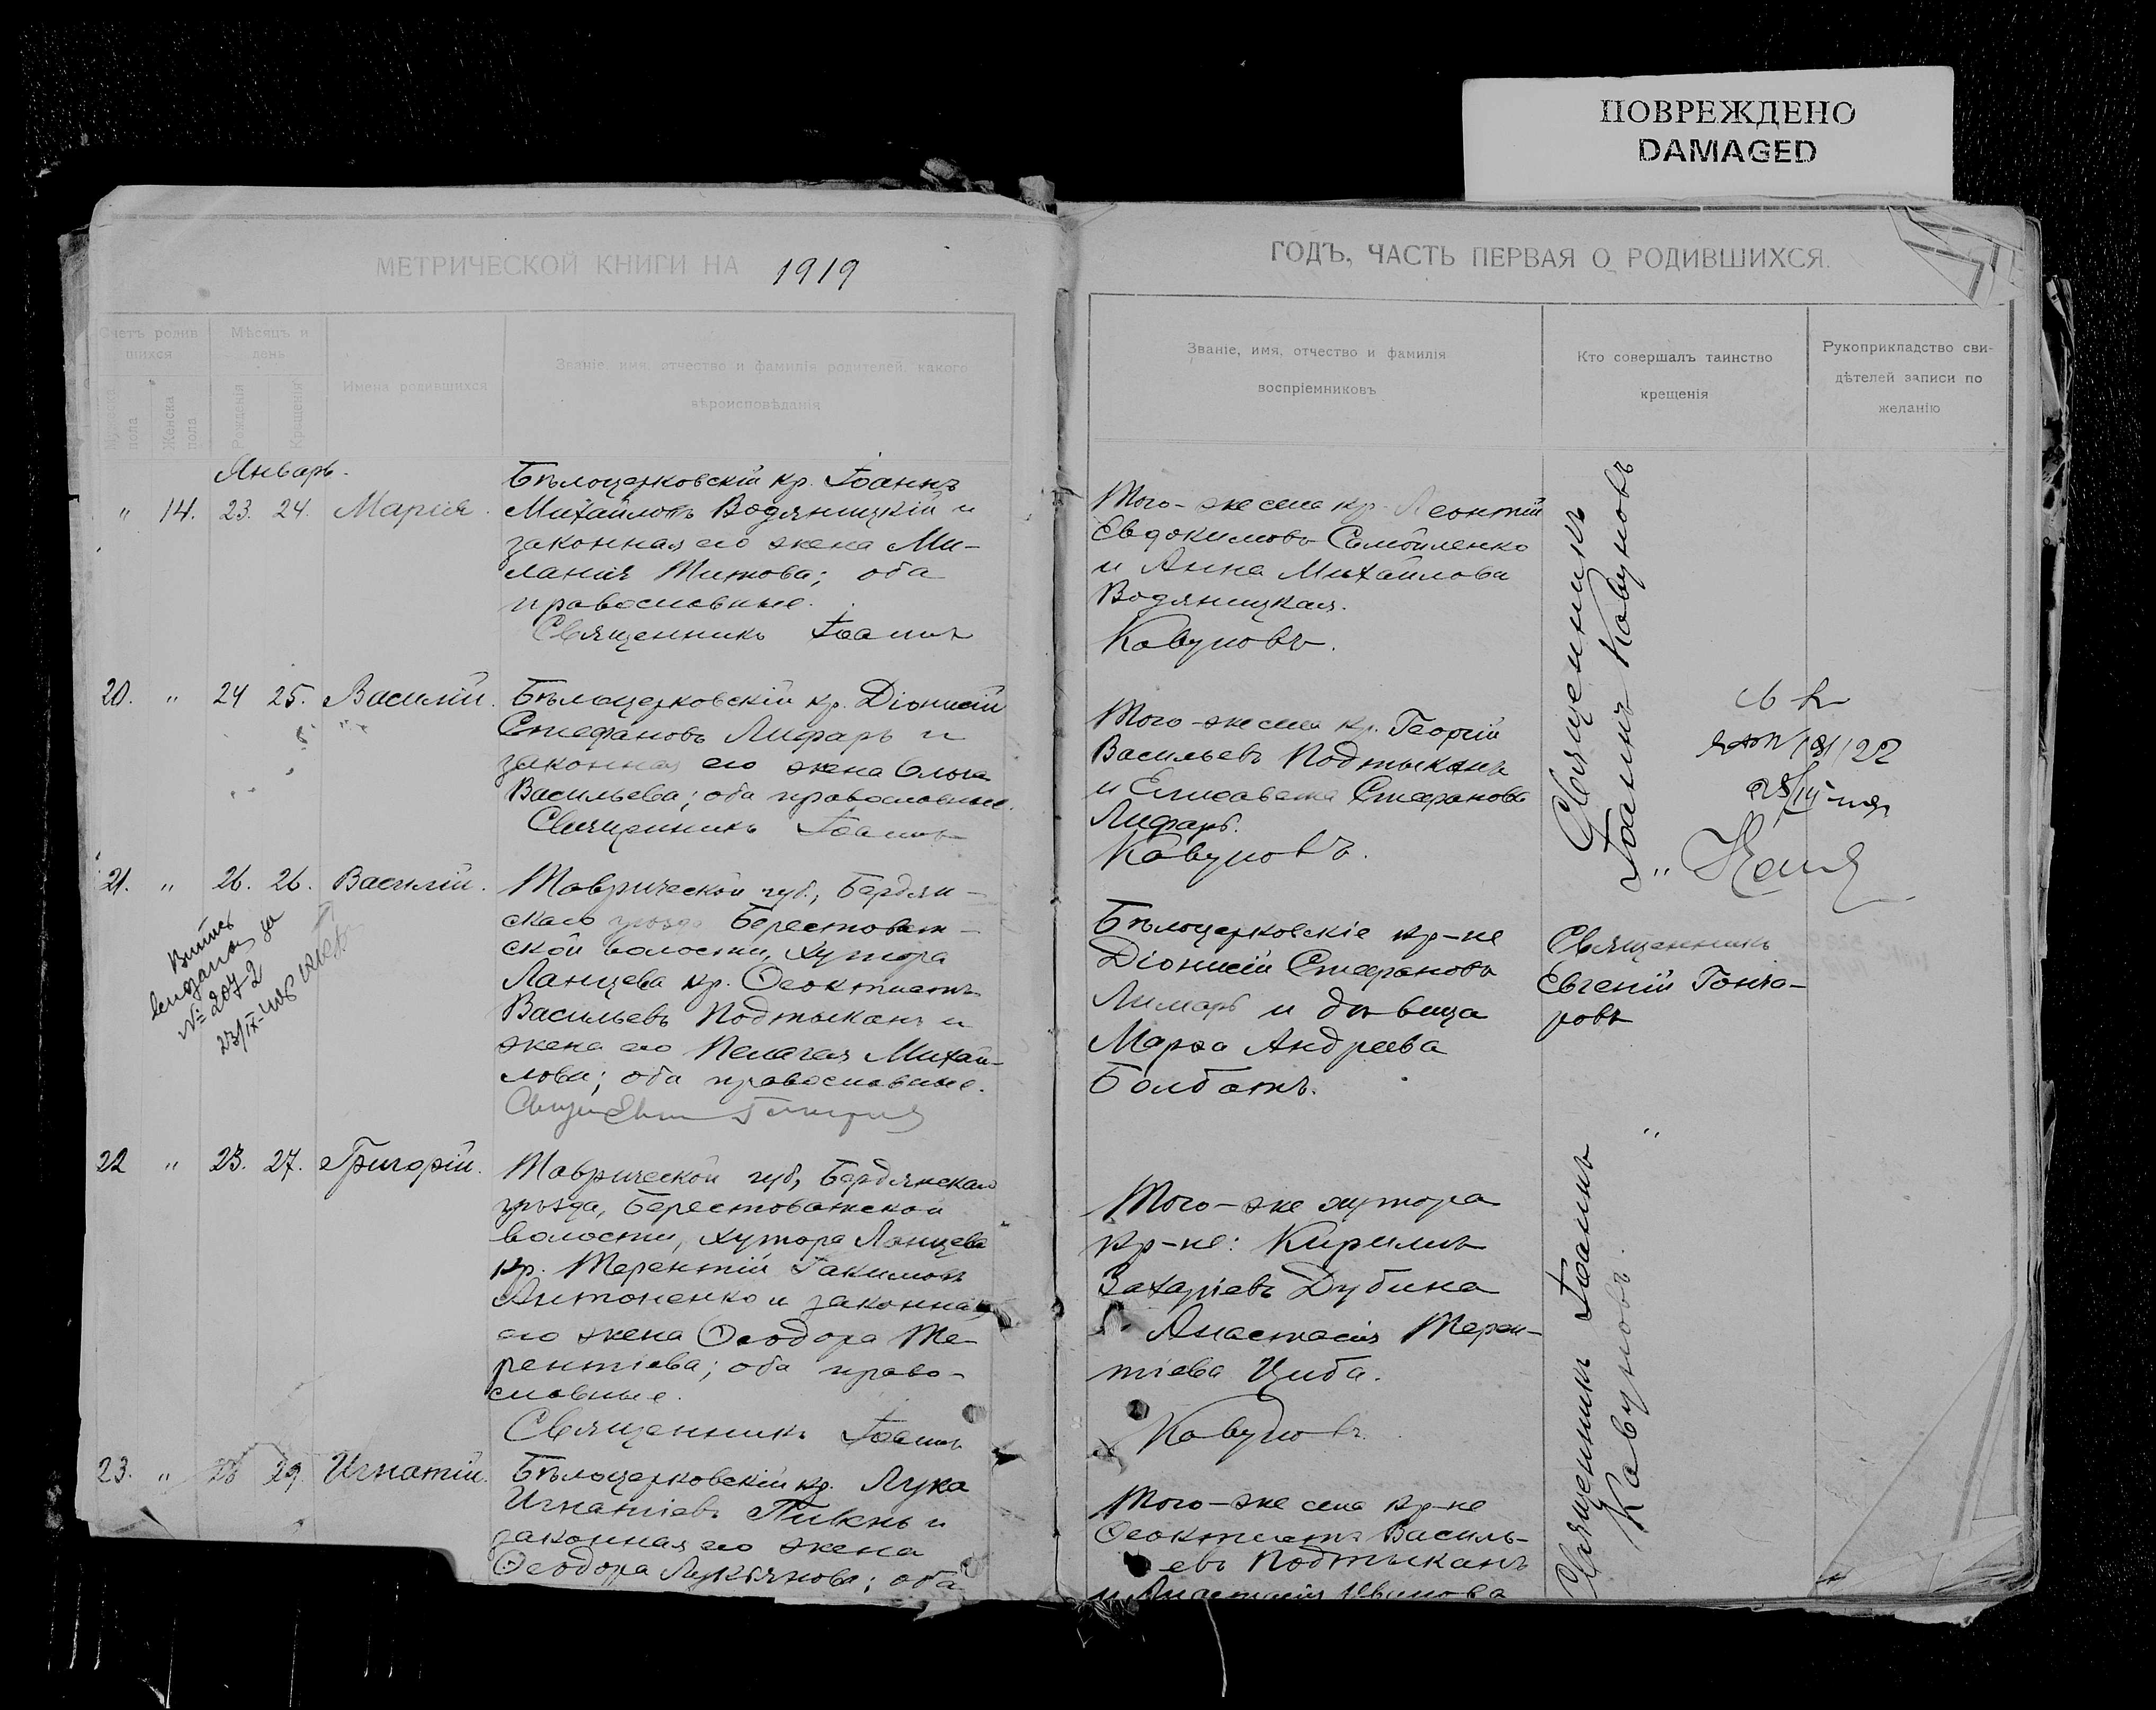 ПОВРЕЖДЕНО
DAMAGED
МЕТРИЧЕСКОЙ КНИГИ НА 1919
ГОДЪ, ЧАСТЬ ПЕРВАЯ О РОДИВШИХСЯ.
Счетъ родившихся
Мужска пола
Женска пола
Мѣсяцъ и день
Рожденія
Крещенія
Имена родившихся
Званіе, имя, отчество и фамилія родителей, какого
вѣроисповѣданія
Званіе, имя, отчество и фамилія
воспріемниковъ
Кто совершалъ таинство
крещенія
Рукоприкладство сви-
дѣтелей записи по
желанію
Январь.
" 14. 23. 24. Марія.
Бѣлоцерковскій кр. Іоаннъ
Михайловъ Водяницкій и
законная его жена Ми-
ланія Титова; оба
православные.
Священникъ Іоаннъ
Того-же села кр. Леонтій
Евдокимовъ Самойленко
и Анна Михайлова
Водяницкая.
Кавуновъ.
Священникъ
Іоаннъ Кавуновъ
20. " 24 25. Василій.
Бѣлоцерковскій кр. Діонисій
Стефановъ Лифарь и
законная его жена Ольга
Васильева; оба православные.
Священникъ Іоаннъ
Того-же села кр. Георгій
Васильевъ Подтыканъ
и Елисавета Стефанова
Лифарь.
Кавуновъ.
"
21. " 26. 26. Василій.
Витяг
видано за
№ 2072
Таврической губ., Бердян-
скаго уѣзда Берестоват-
ской волости, хутора
Ланцева кр. Ѳеоктистъ
Васильевъ Подтыканъ и
жена его Пелагея Михай-
лова; оба православные.
Бѣлоцерковскіе кр-не
Діонисій Стефановъ
Лимарь и дѣвица
Марѳа Андреева
Болбатъ.
Священникъ
Евгеній Гонча-
ровъ
22 " 23. 27. Григорій.
Таврической губ., Бердянскаго
уѣзда, Берестоватской
волости, хутора Ланцева
кр. Терентій Іакимовъ
Антоненко и законная
его жена Ѳеодора Те-
рентіева; оба право-
славные.
Священникъ Іоаннъ
Того-же хутора
кр-не: Кириллъ
Захаріевъ Дубина
Анастасія Терен-
тіева Циба.
Кавуновъ.
"
Священникъ Іоаннъ
Кавуновъ.
23. " 28 29. Игнатій.
Бѣлоцерковскій кр. Лука
Игнатіевъ Пивень и
законная его жена
Ѳеодора Лукіянова; оба
Того-же села кр-не
Ѳеоктистъ Василь-
евъ Подтыканъ
и Анастасія Иванова